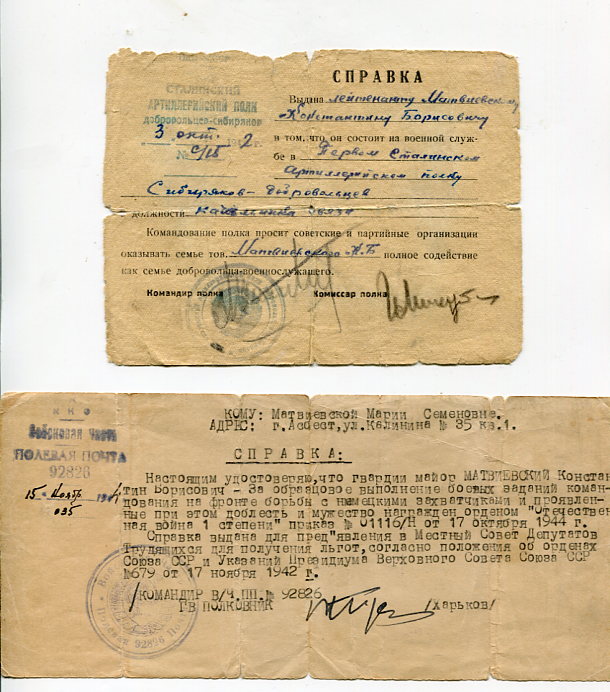 СТАЛИНСКИЙ
АРТИЛЛЕРИЙСКИЙ ПОЛК
добровольцев-сибиряков
3 окт. 1942
№ с/15
СПРАВКА
Выдана лейтенанту Матвиевскому
Константину Борисовичу
в том, что он состоит на военной служ-
бе в Первом Сталинском
артиллерийском полку
Сибиряков-добровольцев
должности начальника связи
Командование полка просит советские и партийные организации
оказывать семье тов. Матвиевского К.Б полное содействие
как семье добровольца-военнослужащего.
Командир полка
Комиссар полка
НКО
Войсковая часть
ПОЛЕВАЯ ПОЧТА
92826
15 Ноябр
035
КОМУ: Матвиевской Марии Семеновне.
АДРЕС: г.Асбест,ул.Калинина № 35 кв.1.
СПРАВКА:
Настоящим удостоверяю,что гвардии майор МАТВИЕВСКИЙ Констан-
тин Борисович - За образцовое выполнение боевых заданий коман-
дования на фронте борьбы с немецкими захватчиками и проявлен-
ные при этом доблесть и мужество награжден орденом "Отечествен-
ная война 1 степени" приказ № 01116/Н от 17 октября 1944 г.
Справка выдана для пред"явления в Местный Совет Депутатов
Трудящихся для получения льгот,согласно положения об орденах
Союза ССР и Указаний Президиума Верховного Совета Союза ССР
№679 от 17 ноября 1942 г.
/КОМАНДИР В/Ч.ПП.№ 92826
ГВ ПОЛКОВНИК
/Харьков/
Полевая 92826 Почта